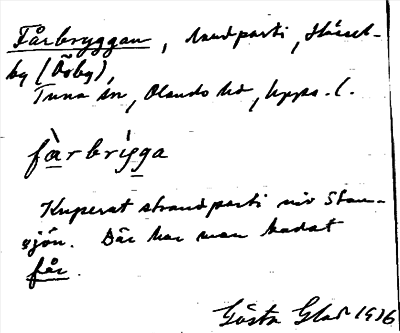 Fårbryggan, landparti, Hässel-
by (Ösby),
Tuna sn, Olands hd, Upps. l.
fàrbriga
Kuperat strandparti vid Stam-
sjön. Där har man badat
får.
Gösta Glad 1936